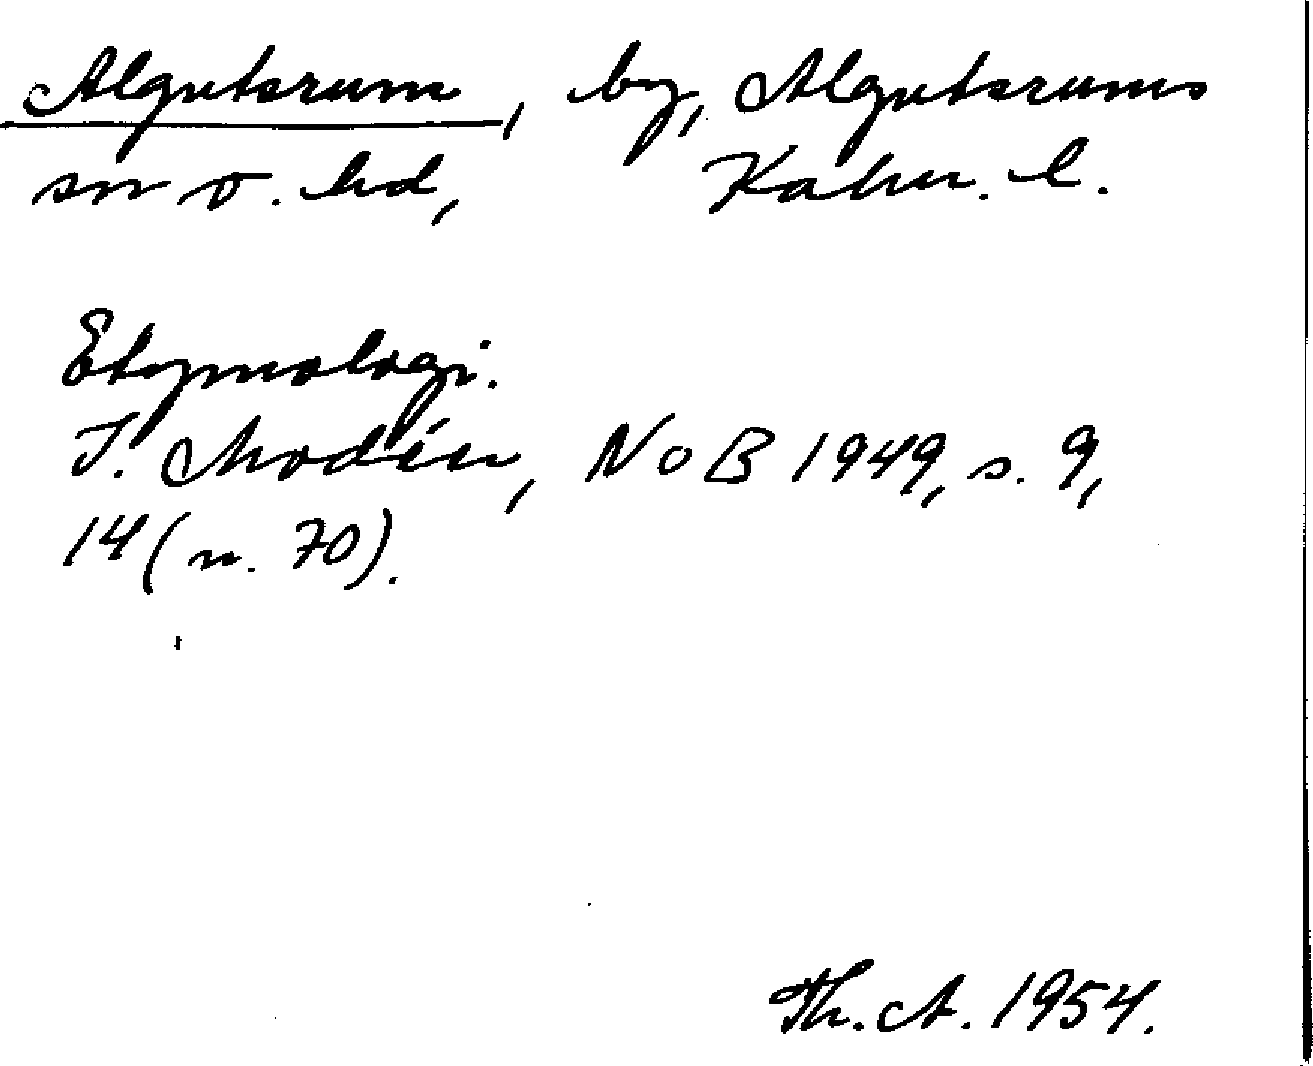 Algutsrum, by, Algutsrums
sn o. hd, Kalm. l.
Etymologi.
I. Modéer, NoB 1949, s. 9,
14 (n. 70).
Th. A. 1954.